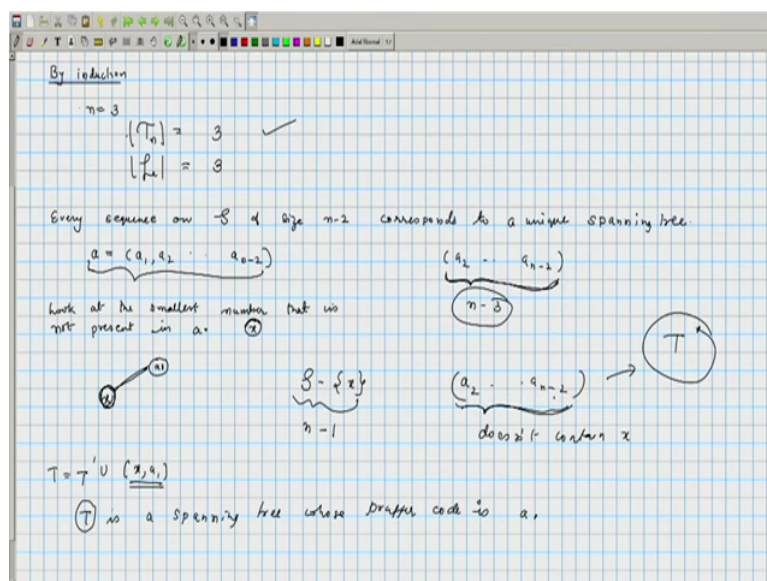 By induction
n = 3
|Tn| = 3 ✓
|Ln| = 3
Every sequence on S of size n-2 corresponds to a unique spanning tree.
a = (a1, a2 . . an-2)
(a2 . . an-2)
n - 3
Look at the smallest number that is
not present in a. x
x a1
S - {x}
n - 1
(a2 . . an-2) → T'
doesn't contain x
T = T' U (x, a1)
T is a spanning tree whose pruffer code is a.